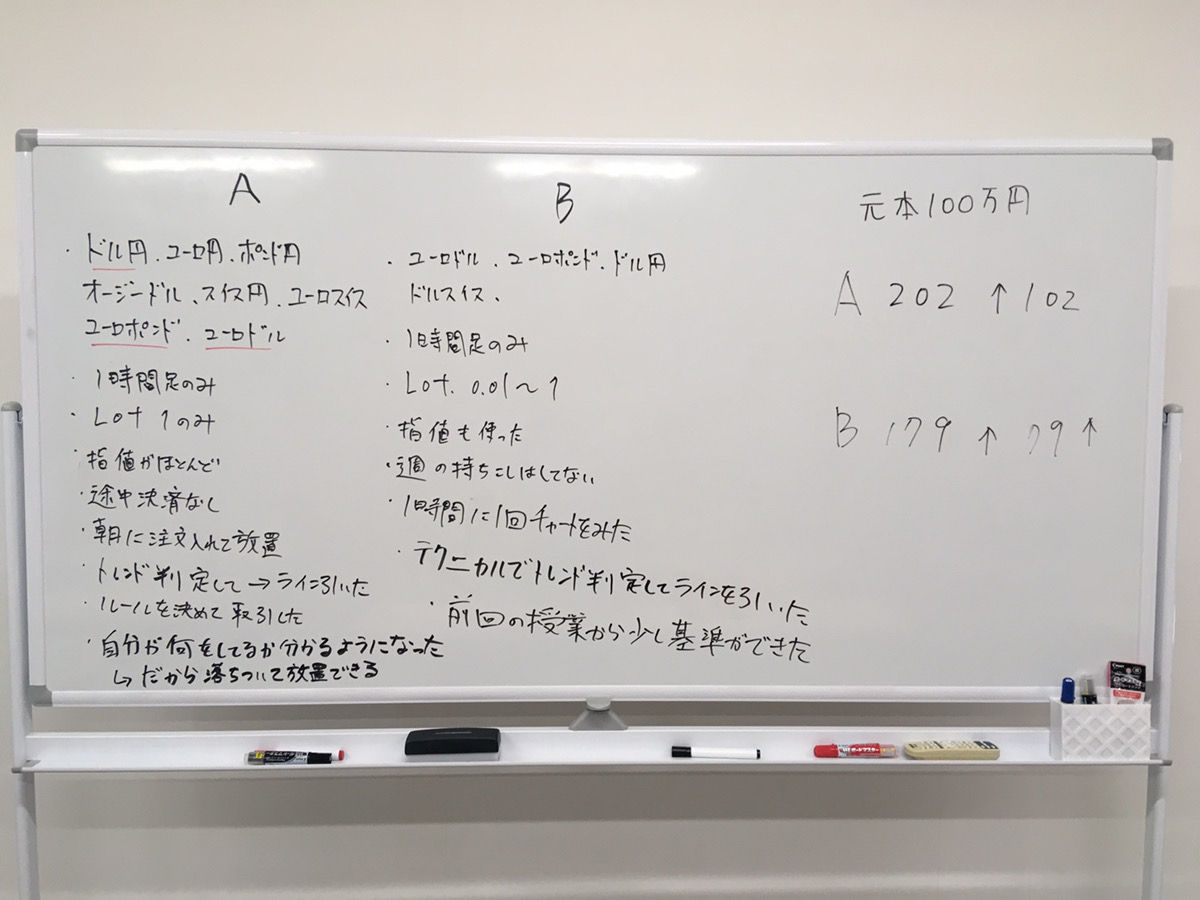 A
・ドル円、ユーロ円、ポンド円
オージードル、スイス円、ユーロスイス
ユーロポンド、ユーロドル
・1時間足のみ
・Lot 1のみ
・指値がほとんど
・途中決済なし
・朝に注文入れて放置
・トレンド判定して→ライン引いた
・ルールを決めて取引した
・自分が何をしてるか分かるようになった
↳だから落ちついて放置できる
B
・ユーロドル、ユーロポンド、ドル円
ドルスイス、
・1時間足のみ
・Lot. 0.01〜1
・指値も使った
・週の持ちこしはしてない
・1時間に1回チャートをみた
・テクニカルでトレンド判定してラインを引いた
・前回の授業から少し基準ができた
元本100万円
A 202 ↑102
B 179 ↑ 79↑